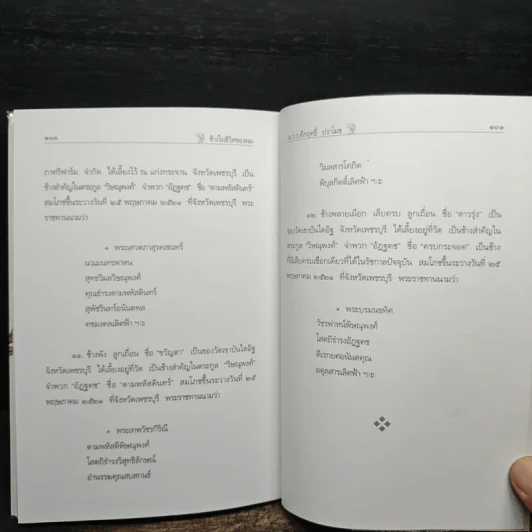 ๑๐๐ ช้างในชีวิตของผม
ภาครีฟาร์ม จำกัด ได้เลี้ยงไว้ ณ แก่งกระจาน จังหวัดเพชรบุรี เป็น
ช้างสำคัญในตระกูล "วิษณุพงศ์" จำพวก "อัฏฐคช" ชื่อ "ดามพหัสดินทร์"
สมโภชขึ้นระวางวันที่ ๒๕ พฤษภาคม ๒๕๒๑ ที่จังหวัดเพชรบุรี พระ
ราชทานนามว่า
พระเศวตภาสุรคเชนทร์
นวเมนทรพาหน
สุทธวิมลวิษณุพงศ์
คุณธำรงดามพหัสดินทร์
สุพัชรินทร์อนันตพล
คชมงคลเลิศฟ้า ฯะ
๑๑. ช้างพัง ลูกเถื่อน ชื่อ "ขวัญตา" เป็นของวัดเขาบันไดอิฐ
จังหวัดเพชรบุรี ได้เลี้ยงอยู่ที่วัด เป็นช้างสำคัญในตระกูล "วิษณุพงศ์"
จำพวก "อัฏฐคช" ชื่อ "ดามพหัสดินทร์" สมโภชขึ้นระวางวันที่ ๒๕
พฤษภาคม ๒๕๒๑ ที่จังหวัดเพชรบุรี พระราชทานนามว่า
พระเทพวัชรกิริณี
ดามพหัสดีพิษณุพงศ์
โสตถีธำรงวิสุทธิลักษณ์
อำนรรฆคุณสบสกนธ์
ม.ร.ว.คึกฤทธิ์ ปราโมช ๑๐๑
วิมลสารโสภิต
พิบูลกิตติ์เลิศฟ้า ฯะ
๑๒. ช้างพลายเผือก เล็บครบ ลูกเถื่อน ชื่อ "ดาวรุ่ง" เป็น
ของวัดเขาบันไดอิฐ จังหวัดเพชรบุรี ได้เลี้ยงอยู่ที่วัด เป็นช้างสำคัญใน
ตระกูล "วิษณุพงศ์" จำพวก "อัฏฐคช" ชื่อ "ครบกระจอก" เป็นช้าง
ที่มีเล็บครบเชือกเดียวที่ได้ในรัชกาลปัจจุบัน สมโภชขึ้นระวางวันที่ ๒๕
พฤษภาคม ๒๕๒๑ ที่จังหวัดเพชรบุรี พระราชทานนามว่า
พระบรมนขทัศ
วัชรพาหน์พิษณุพงศ์
โสตถีธำรงอัฏฐคช
ดิเรกยศอนันตคุณ
อดุลสารเลิศฟ้า ฯะ